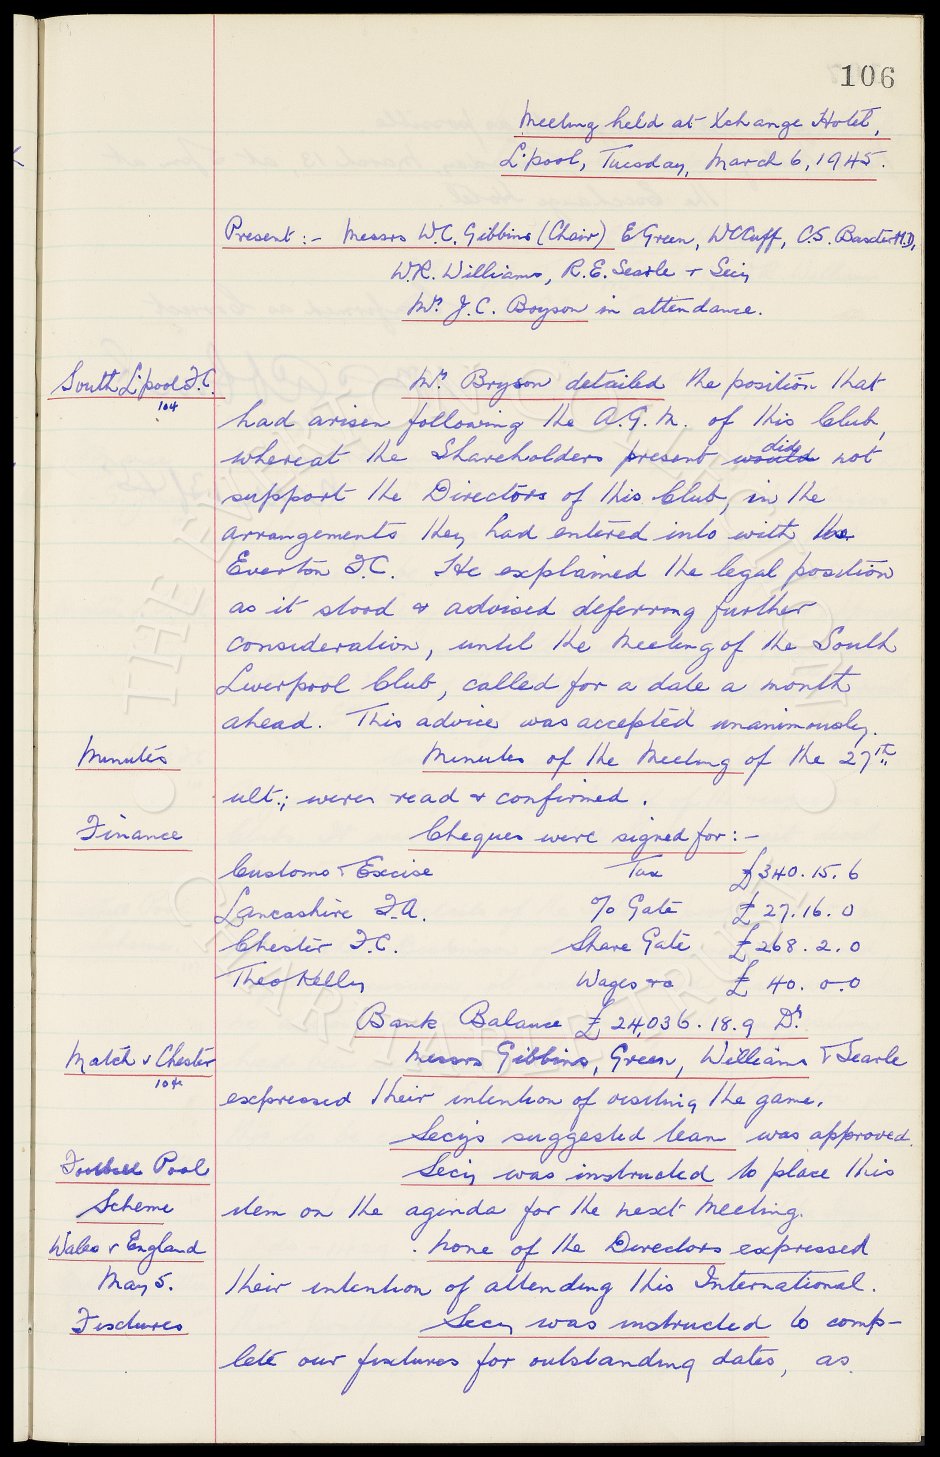 106
Meeting held at Xchange Hotel,
L'pool, Tuesday, March 6, 1945.
Present :- Messrs W.C. Gibbins (Chair) E Green, W C Cuff, C.S. Baxter M.D,
W.R. Williams, R.E. Searle & Secy
Mr J.C. Bryson in attendance.
South L'pool F.C. Mr. Bryson detailed the position that
104
had arisen following the A.G.M. of this Club,
whereat the Shareholders present would did not
support the Directors of this Club, in the
arrangements they had entered into with the
Everton F.C. He explained the legal position
as it stood & advised deferring further
consideration, until the Meeting of the South
Liverpool Club, called for a date a month
ahead. This advice was accepted unanimously.
Minutes Minutes of the Meeting of the 27th
ult.; were read & confirmed.
Finance Cheques were signed for:-
Customs & Excise Tax £340.15.6
Lancashire F.A. % Gate £27.16.0
Chester F.C. Share Gate £268.2.0
Theo Kelly Wages &c £40.0.0
Bank Balance £24,036.18.9 Dr.
Match v Chester Messrs Gibbins, Green, Williams & Searle
104
expressed their intention of visiting the game.
Secy's suggested team was approved.
Football Pool Secy was instructed to place this
Scheme item on the agenda for the next meeting.
Wales v England None of the Directors expressed
May 5. their intention of attending this International.
Fixtures Secy was instructed to comp-
lete our fixtures for outstanding dates, as
THE EVERTON COLLECTION
CHARITABLE TRUST